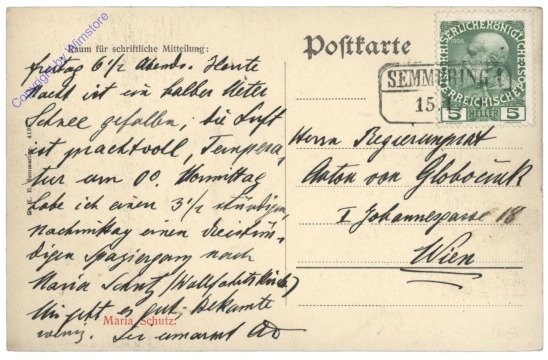 Raum für schriftliche Mitteilung:
Freitag 6 1/2 Abends. Heute
Nacht ist ein halber Meter
Schnee gefallen, die Luft
ist prachtvoll, Tempera-
tur um 0°. Vormittag
habe ich einen 3 1/2 stündigen,
Nachmittag einen dreistün-
digen Spaziergang nach
Maria Schutz (Wallfahrtskirche)
Mir geht es gut, Bekannte
wenig. Sie umarmt
Maria Schutz.
Copyright by Wimstore
Postkarte
1908
KAISERLICHE KÖNIGLICHE
ÖSTERREICHISCHE
5 HELLER 5
SEMMERING 1
15.
Herrn Regierungsrat
Anton von Globocnik
I Johannesgasse 18
Wien